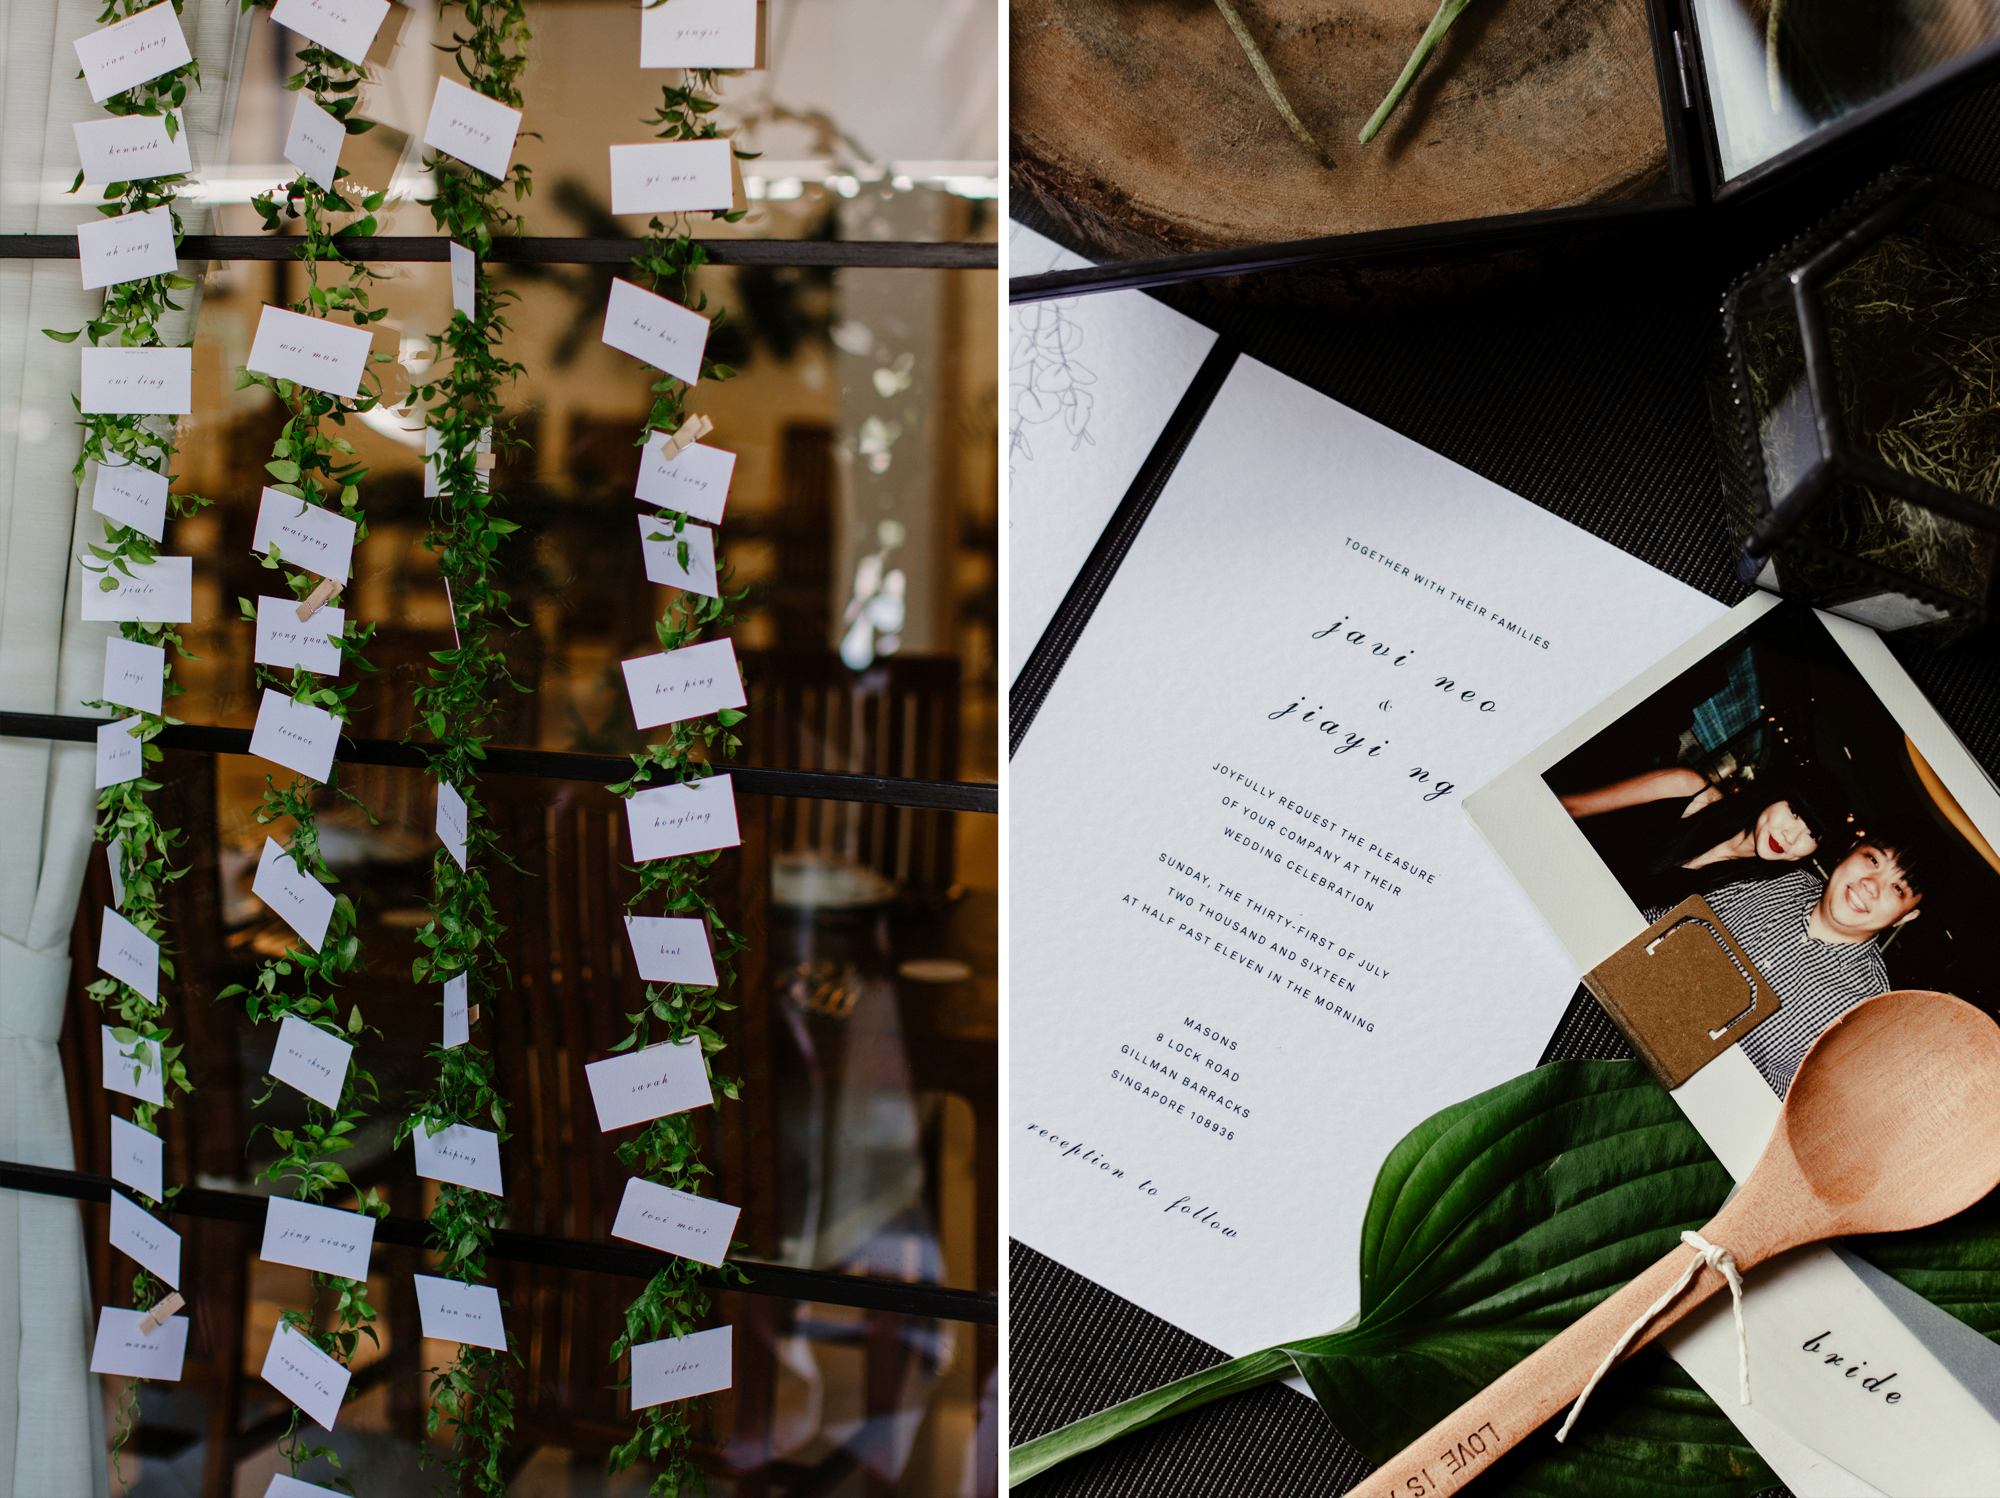 sian cheng
kenneth
ah seng
cui ling
siew leh
jiale
peiyi
jayson
cheryl
ke xin
wai mun
maiyong
yong quan
terence
raol
wei cheng
jing xiang
eugene lim
gregory
shiping
han wei
yingsi
yi min
hui hui
teck seng
hee ping
hongling
kent
sarah
tooi mooi
esther
TOGETHER WITH THEIR FAMILIES
javi neo
&
jiayi ng
JOYFULLY REQUEST THE PLEASURE
OF YOUR COMPANY AT THEIR
WEDDING CELEBRATION
SUNDAY, THE THIRTY-FIRST OF JULY
TWO THOUSAND AND SIXTEEN
AT HALF PAST ELEVEN IN THE MORNING
MASONS
8 LOCK ROAD
GILLMAN BARRACKS
SINGAPORE 108936
reception to follow
bride
LOVE IS